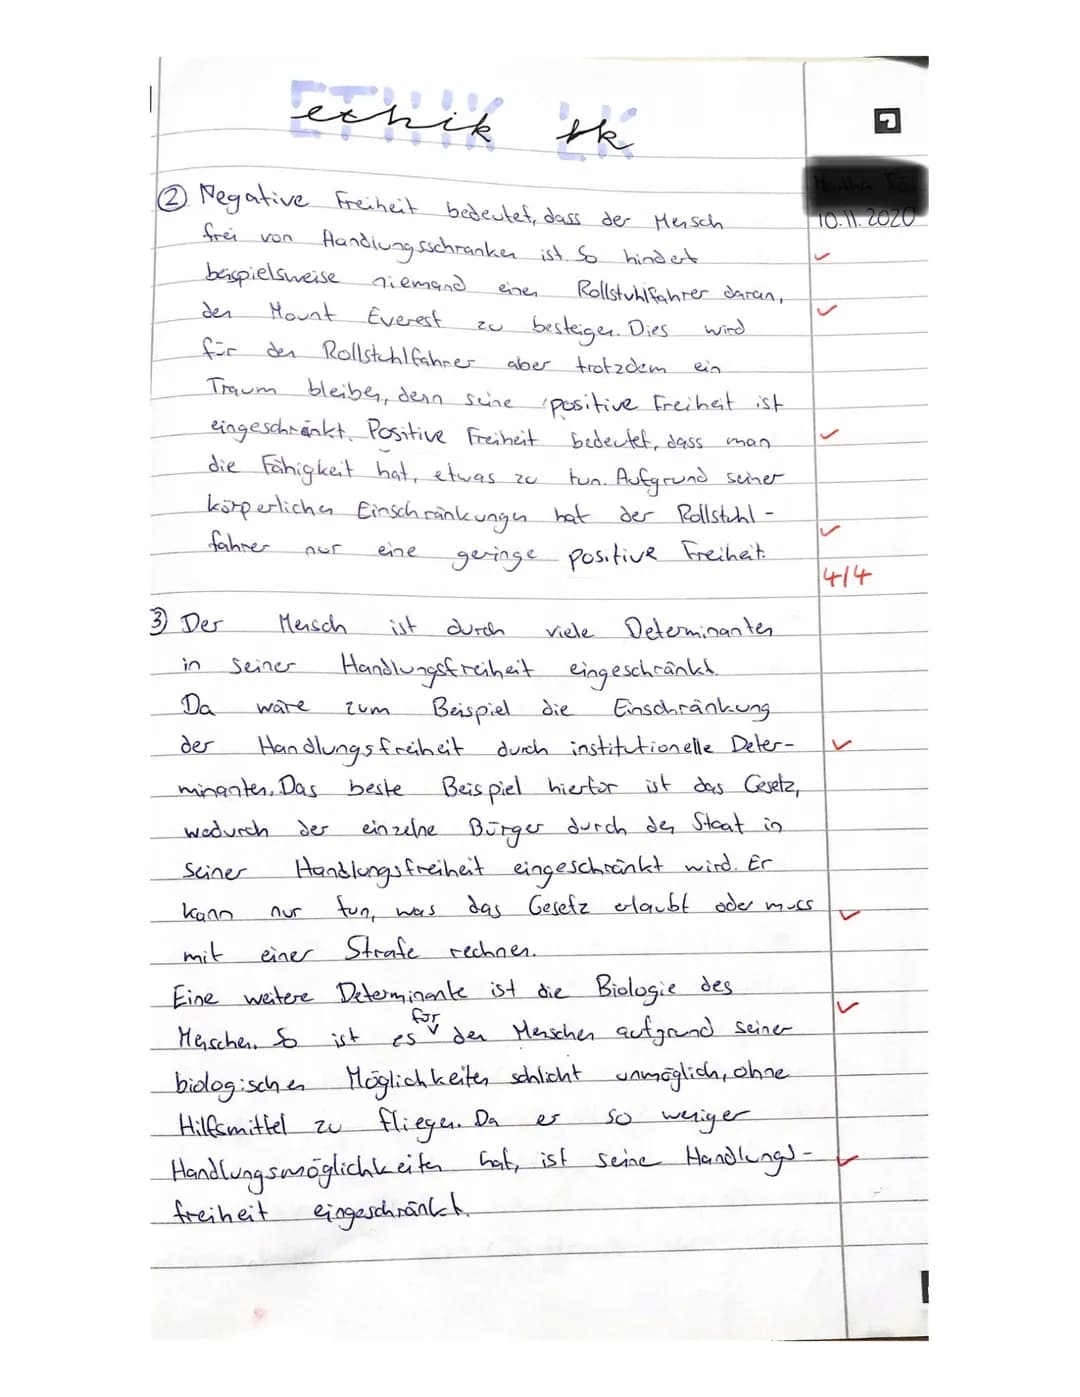 ethik lk
10.11.2020
② Negative Freiheit bedeutet, dass der Mensch
frei von Handlungsschranken ist. So hindert
beispielsweise niemand einen Rollstuhlfahrer daran,
den Mount Everest zu besteigen. Dies wird
für den Rollstuhlfahrer aber trotzdem ein
Traum bleiben, denn seine positive Freiheit ist
eingeschränkt. Positive Freiheit bedeutet, dass man
die Fähigkeit hat, etwas zu tun. Aufgrund seiner
körperlichen Einschränkungen hat der Rollstuhl-
fahrer nur eine geringe positive Freiheit.
4/4
③ Der Mensch ist durch viele Determinanten
in seiner Handlungsfreiheit eingeschränkt.
Da wäre zum Beispiel die Einschränkung
der Handlungsfreiheit durch institutionelle Deter-
minanten. Das beste Beispiel hierfür ist das Gesetz,
wodurch der einzelne Bürger durch den Staat in
seiner Handlungsfreiheit eingeschränkt wird. Er
kann nur tun, was das Gesetz erlaubt oder muss
mit einer Strafe rechnen.
Eine weitere Determinante ist die Biologie des
Menschen. So ist es für den Menschen aufgrund seiner
biologischen Möglichkeiten schlicht unmöglich, ohne
Hilfsmittel zu fliegen. Da er so weniger
Handlungsmöglichkeiten hat, ist seine Handlungs-
freiheit eingeschränkt.